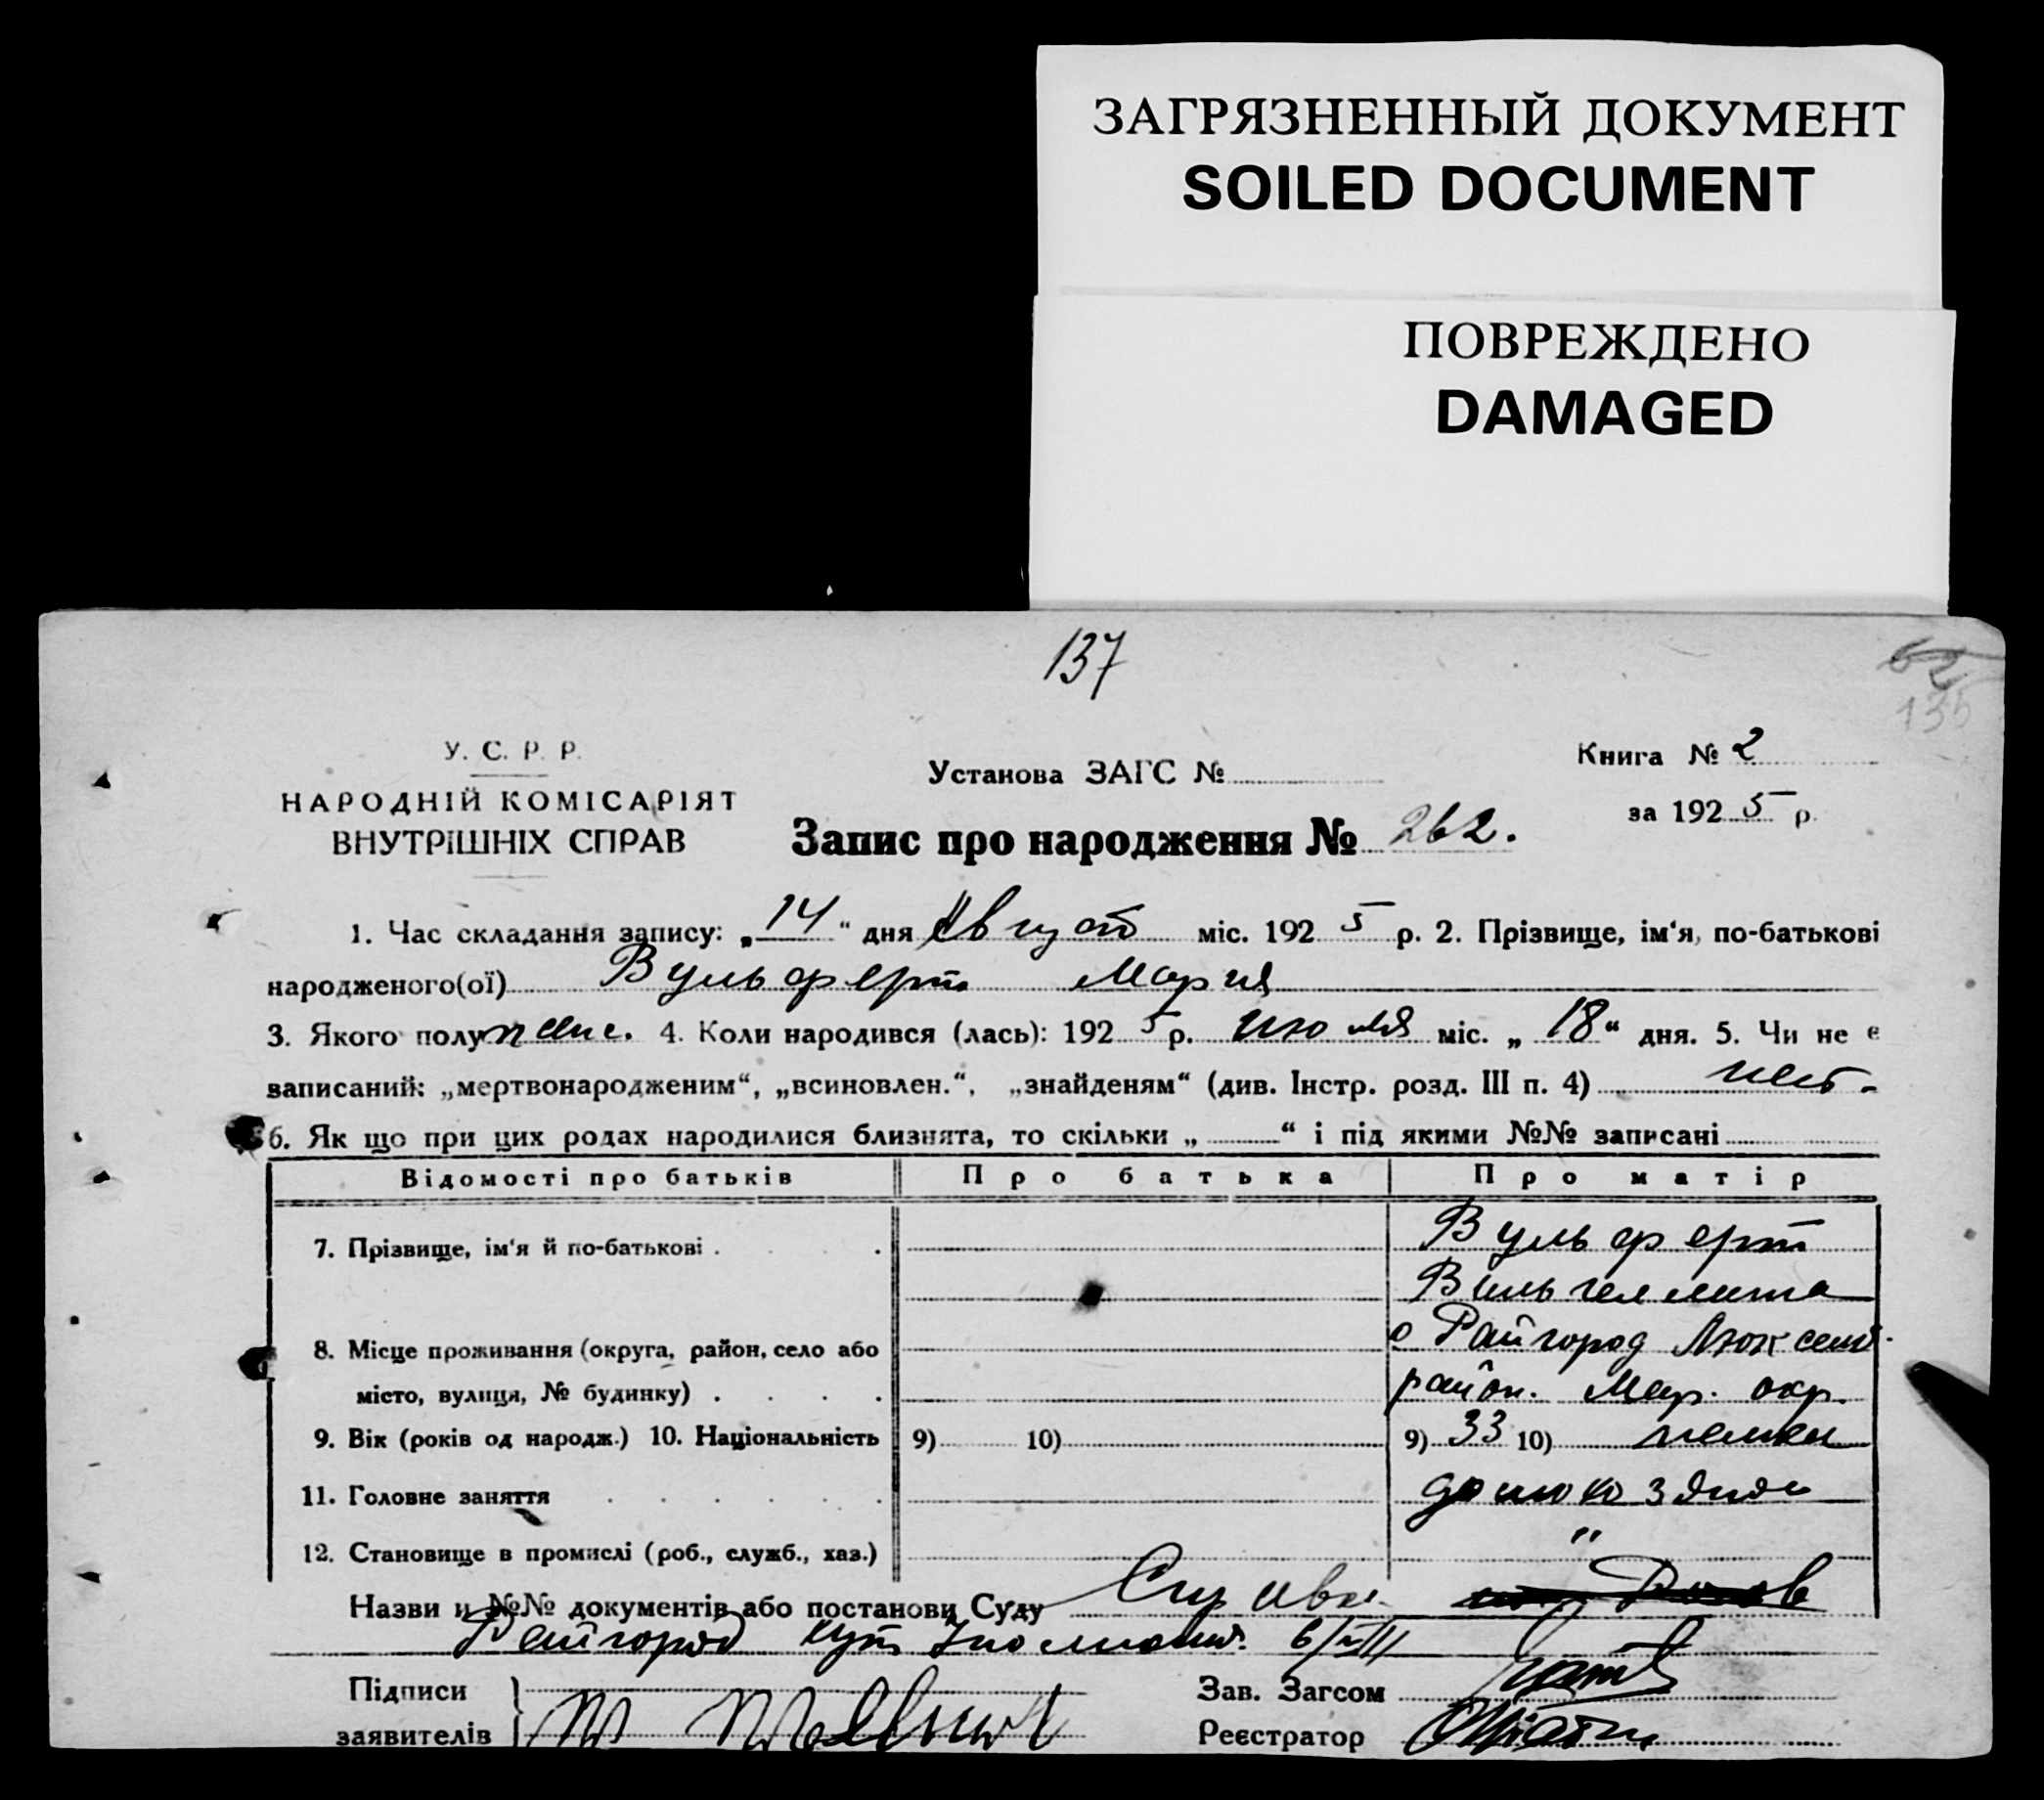 ЗАГРЯЗНЕННЫЙ ДОКУМЕНТ
SOILED DOCUMENT
ПОВРЕЖДЕНО
DAMAGED
137
62
135
У. С. Р. Р.
НАРОДНІЙ КОМІСАРІЯТ
ВНУТРІШНІХ СПРАВ
Установа ЗАГС №
Книга № 2
за 1925 р.
Запис про народження № 262.
1. Час складання запису: „14“ дня Август міс. 1925 р. 2. Прізвище, ім‘я, по-батькові
народженого(ої) Вульферт Мария
3. Якого полу женс. 4. Коли народився (лась): 1925 р. июля міс. „18“ дня. 5. Чи не є
записаний: „мертвонародженим“, „всиновлен.“, „знайденям“ (див. Інстр. розд. III п. 4) нет.
6. Як що при цих родах народилися близнята, то скільки „ “ і під якими №№ записані
Відомості про батьків Про батька Про матір
7. Прізвище, ім‘я й по-батькові Вульферт
Вильгелмина
8. Місце проживання (округа, район, село або с Райгород Люксемб.
місто, вулиця, № будинку) район. Мар. окр.
9. Вік (років од народж.) 10. Національність 9) 10) 9) 33 10) немка
11. Головне заняття домохозяйн
12. Становище в промислі (роб., служб., хаз.) "
Назви и №№ документів або постанови Суду Справка
Райгород 6/VIII
Підписи
заявителів
Зав. Загсом
Реєстратор